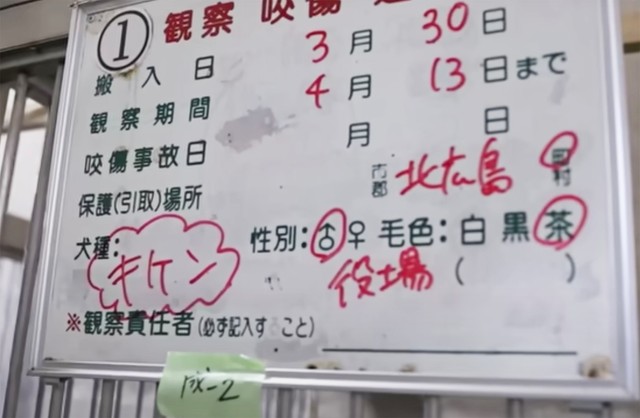 ① 観察 咬傷
搬入日 3月30日
観察期間 4月13日まで
咬傷事故日 月 日
保護(引取)場所 市郡 北広島 町村
犬種: キケン 性別:♂♀ 毛色:白 黒 茶
役場 ( )
※観察責任者(必ず記入すること)
成-2